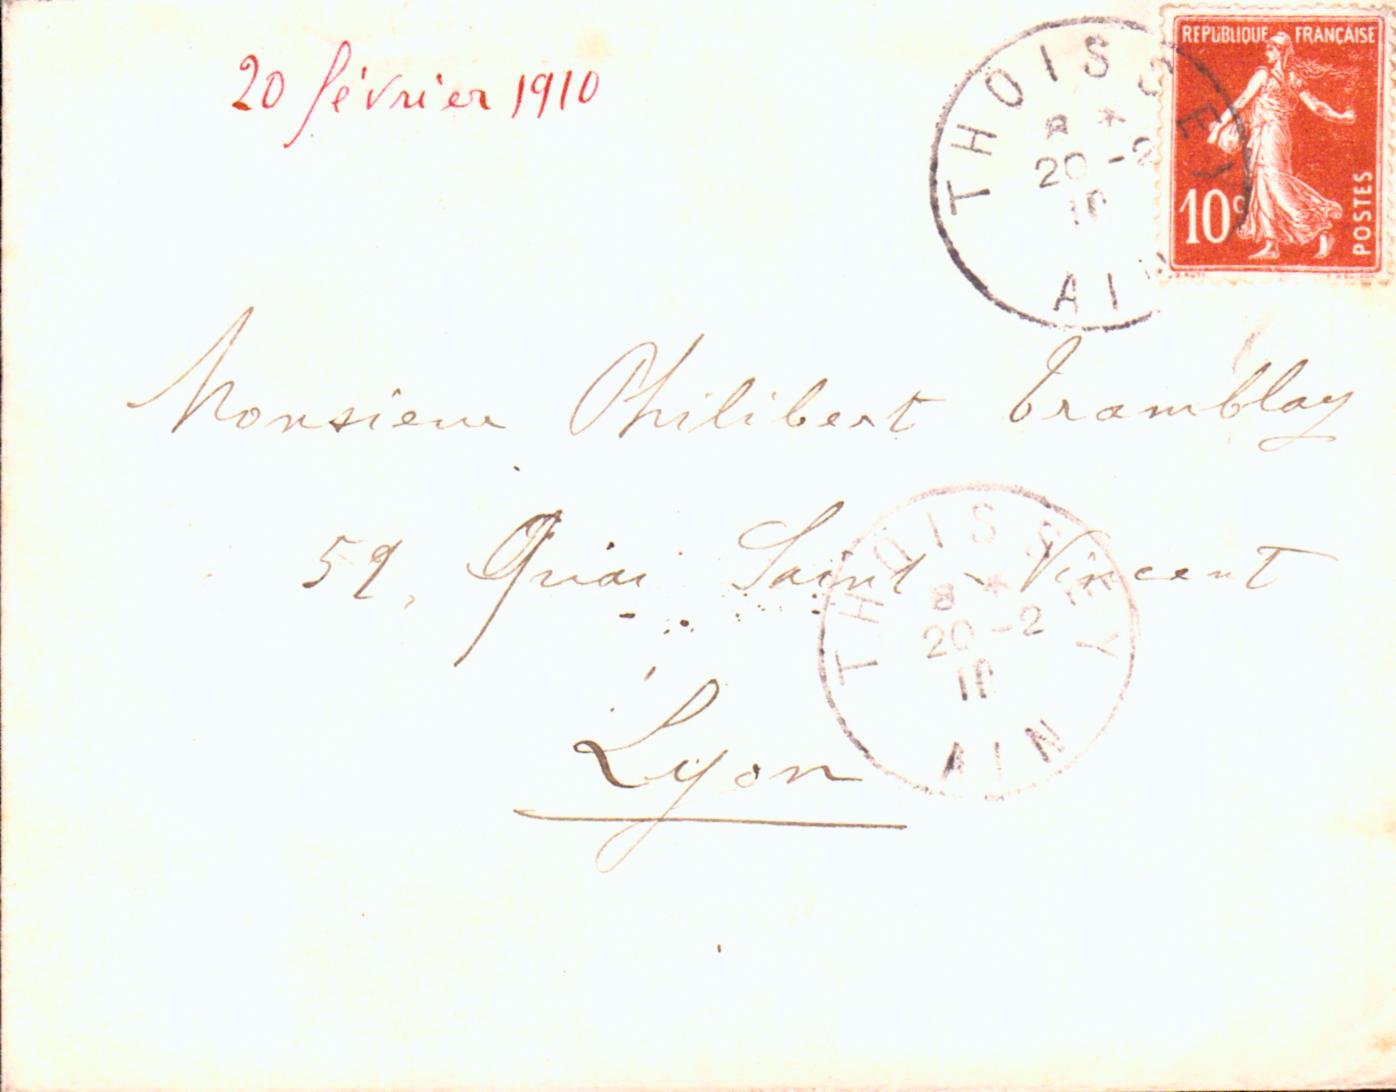 20 février 1910
THOISSEY
8 *
20 - 2
10
AIN
REPUBLIQUE FRANÇAISE
10c
POSTES
Monsieur Philibert Tramblay
59, Quai Saint-Vincent
Lyon
THOISSEY
8 *
20 - 2
10
AIN